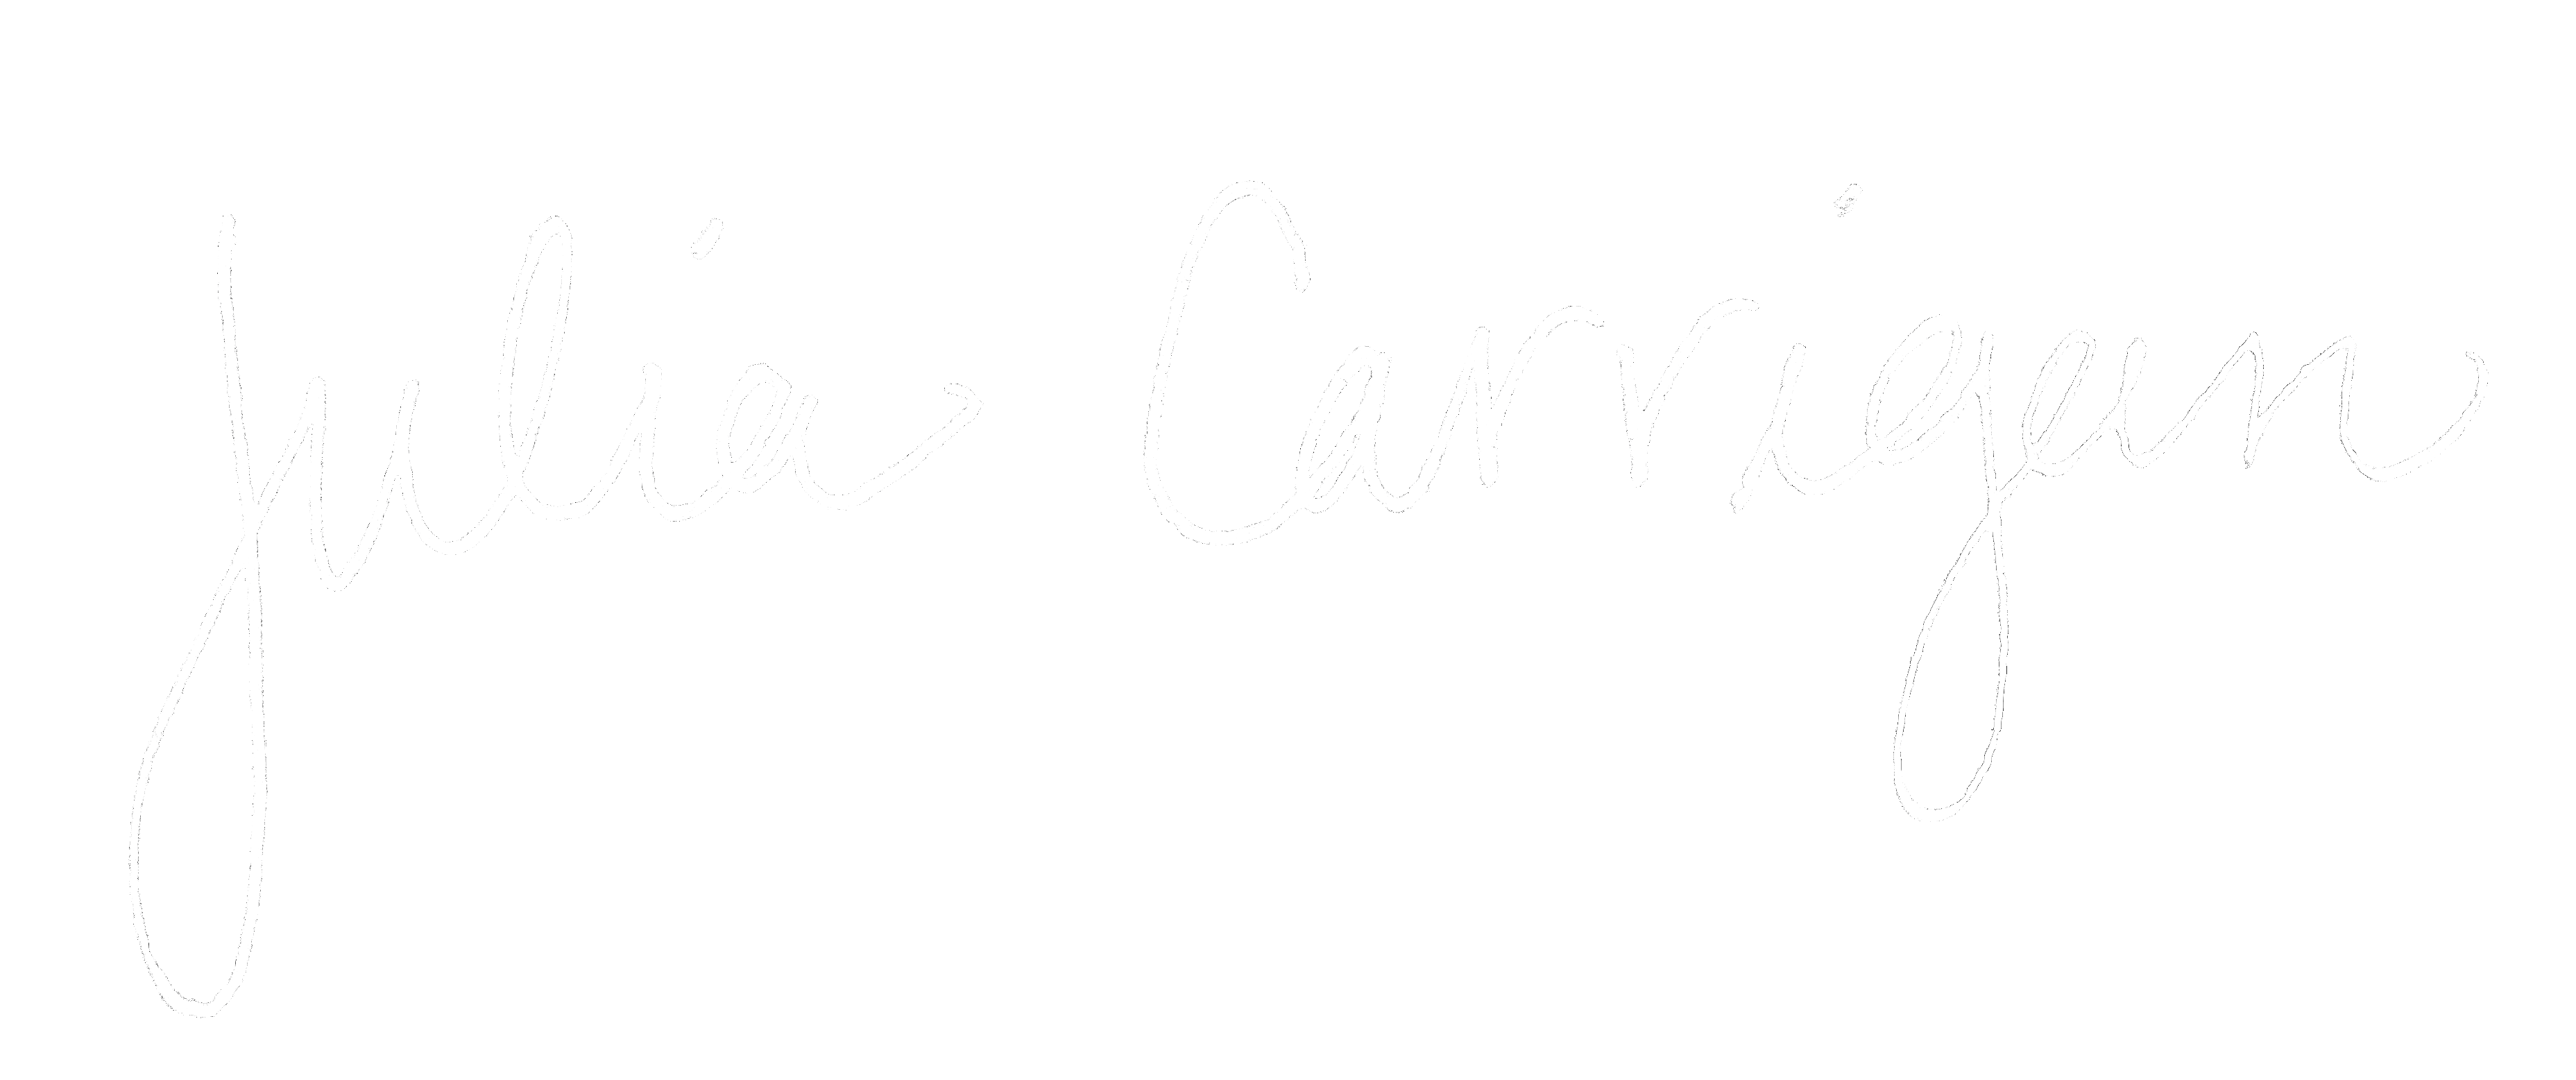 Julia Carrigan